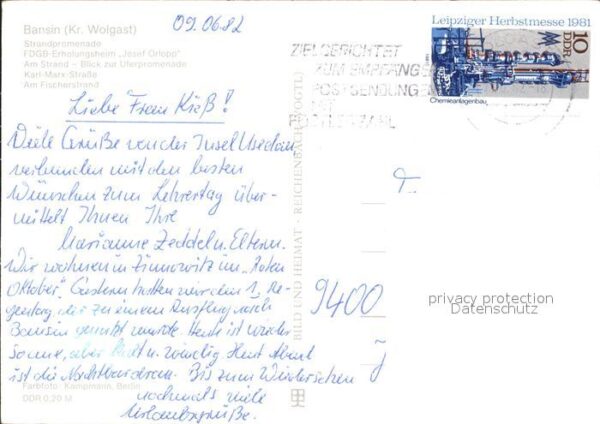 Bansin (Kr. Wolgast)
Strandpromenade
FDGB-Erholungsheim „Josef Orlopp"
Am Strand – Blick zur Uferpromenade
Karl-Marx-Straße
Am Fischerstrand
09.06.82
Leipziger Herbstmesse 1981
10
DDR
Chemieanlagenbau
ZIELGERICHTET
ZUM EMPFÄNGER
POSTSENDUNGEN
MIT
POSTLEITZAHL
Liebe Frau Kieß!
Viele Grüße von der Insel Usedom
verbunden mit den besten
Wünschen zum Lehrertag über-
mittelt Ihnen Ihre
Marianne Zeddel u. Eltern.
Wir wohnen in Zinnowitz im „Roten
Oktober". Gestern hatten wir den 1. Re-
gentag, der zu einem Ausflug nach
Bansin genutzt wurde. Heute ist wieder
Sonne, aber kalt u. windig. Heut Abend
ist die Nachtwanderung. Bis zum Wiedersehen
nochmals viele
Urlaubsgrüße.
BILD UND HEIMAT · REICHENBACH (VOGTL)
9400
privacy protection
Datenschutz
Farbfoto: Kampmann, Berlin
DDR 0,20 M